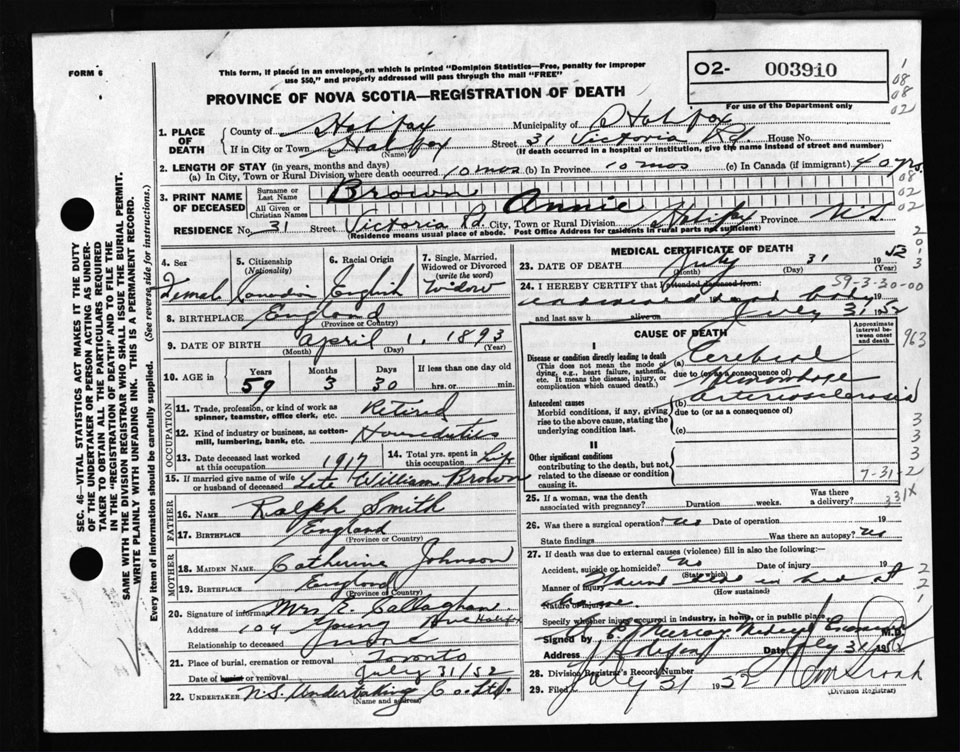 FORM 6
This form, if placed in an envelope, on which is printed "Dominion Statistics—Free, penalty for improper
use $50," and properly addressed will pass through the mail "FREE"
PROVINCE OF NOVA SCOTIA—REGISTRATION OF DEATH
02- 003910
For use of the Department only
1. PLACE OF DEATH
County of Halifax Municipality of Halifax
If in City or Town Halifax (Name) Street 31 Victoria Rd. House No.
(If death occurred in a hospital or institution, give the name instead of street and number)
2. LENGTH OF STAY (in years, months and days)
(a) In City, Town or Rural Division where death occurred 10 mos (b) In Province 10 mos (c) In Canada (if immigrant) 40 yrs.
3. PRINT NAME OF DECEASED
Surname or Last Name Brown
All Given or Christian Names Annie
RESIDENCE No. 31 Street Victoria Rd. City, Town or Rural Division Halifax Province N.S.
(Residence means usual place of abode. Post Office Address for residents in rural parts not sufficient)
4. Sex Female
5. Citizenship (Nationality) Canadian
6. Racial Origin English
7. Single, Married, Widowed or Divorced (write the word) Widow
8. BIRTHPLACE England
(Province or Country)
9. DATE OF BIRTH April 1, 1893
(Month) (Day) (Year)
10. AGE is Years 59 Months 3 Days 30 If less than one day old hrs. or min.
OCCUPATION
11. Trade, profession, or kind of work as spinner, teamster, office clerk, etc. Retired
12. Kind of industry or business, as cotton-mill, lumbering, bank, etc. Housedoties
13. Date deceased last worked at this occupation 1917
14. Total yrs. spent in this occupation Life
15. If married give name of wife or husband of deceased Late William Brown
FATHER
16. Name Ralph Smith
17. Birthplace England
(Province or Country)
MOTHER
18. Maiden Name Catherine Johnson
19. Birthplace England
(Province or Country)
20. Signature of informant Mrs E. Callaghan.
Address 104 Young Ave Halifax
Relationship to deceased none
21. Place of burial, cremation or removal Toronto
Date of burial or removal July 31/52
22. Undertaker N.S. Undertaking Co. Ltd.
(Name and address)
MEDICAL CERTIFICATE OF DEATH
23. DATE OF DEATH July 31 1952
(Month) (Day) (Year)
24. I HEREBY CERTIFY that I attended deceased from:
59-3-30-00
dead body 19
and last saw h alive on July 31 1952
CAUSE OF DEATH
Approximate interval between onset and death
I
Disease or condition directly leading to death
(This does not mean the mode of dying, e.g., heart failure, asthenia, etc. It means the disease, injury, or complication which caused death.)
(a) Cerebral
due to (or as a consequence of) hemorrhage
Antecedent causes
Morbid conditions, if any, giving rise to the above cause, stating the underlying condition last.
(b) arteriosclerosis
due to (or as a consequence of)
(c)
II
Other significant conditions
contributing to the death, but not related to the disease or condition causing it.
7-31-2
331X
963
25. If a woman, was the death associated with pregnancy? Duration weeks. Was there a delivery?
26. Was there a surgical operation? No Date of operation 19
State findings Was there an autopsy? No
27. If death was due to external causes (violence) fill in also the following:—
Accident, suicide or homicide? No (State which) Date of injury 19
Manner of injury Found dead in bed at
(How sustained)
Nature of injury home
Specify whether injury occurred in industry, in home, or in public place
Signed by Murray Medical Examiner M.D.
Address Date July 31 1952
28. Division Registrar's Record Number
29. Filed July 31 1952
(Division Registrar)
SEC. 46—VITAL STATISTICS ACT MAKES IT THE DUTY
OF THE UNDERTAKER OR PERSON ACTING AS UNDER-
TAKER TO OBTAIN ALL THE PARTICULARS REQUIRED
IN THE "REGISTRATION OF DEATH" AND TO FILE THE
SAME WITH THE DIVISION REGISTRAR WHO SHALL ISSUE THE BURIAL PERMIT.
WRITE PLAINLY WITH UNFADING INK. THIS IS A PERMANENT RECORD.
Every item of information should be carefully supplied. (See reverse side for instructions.)